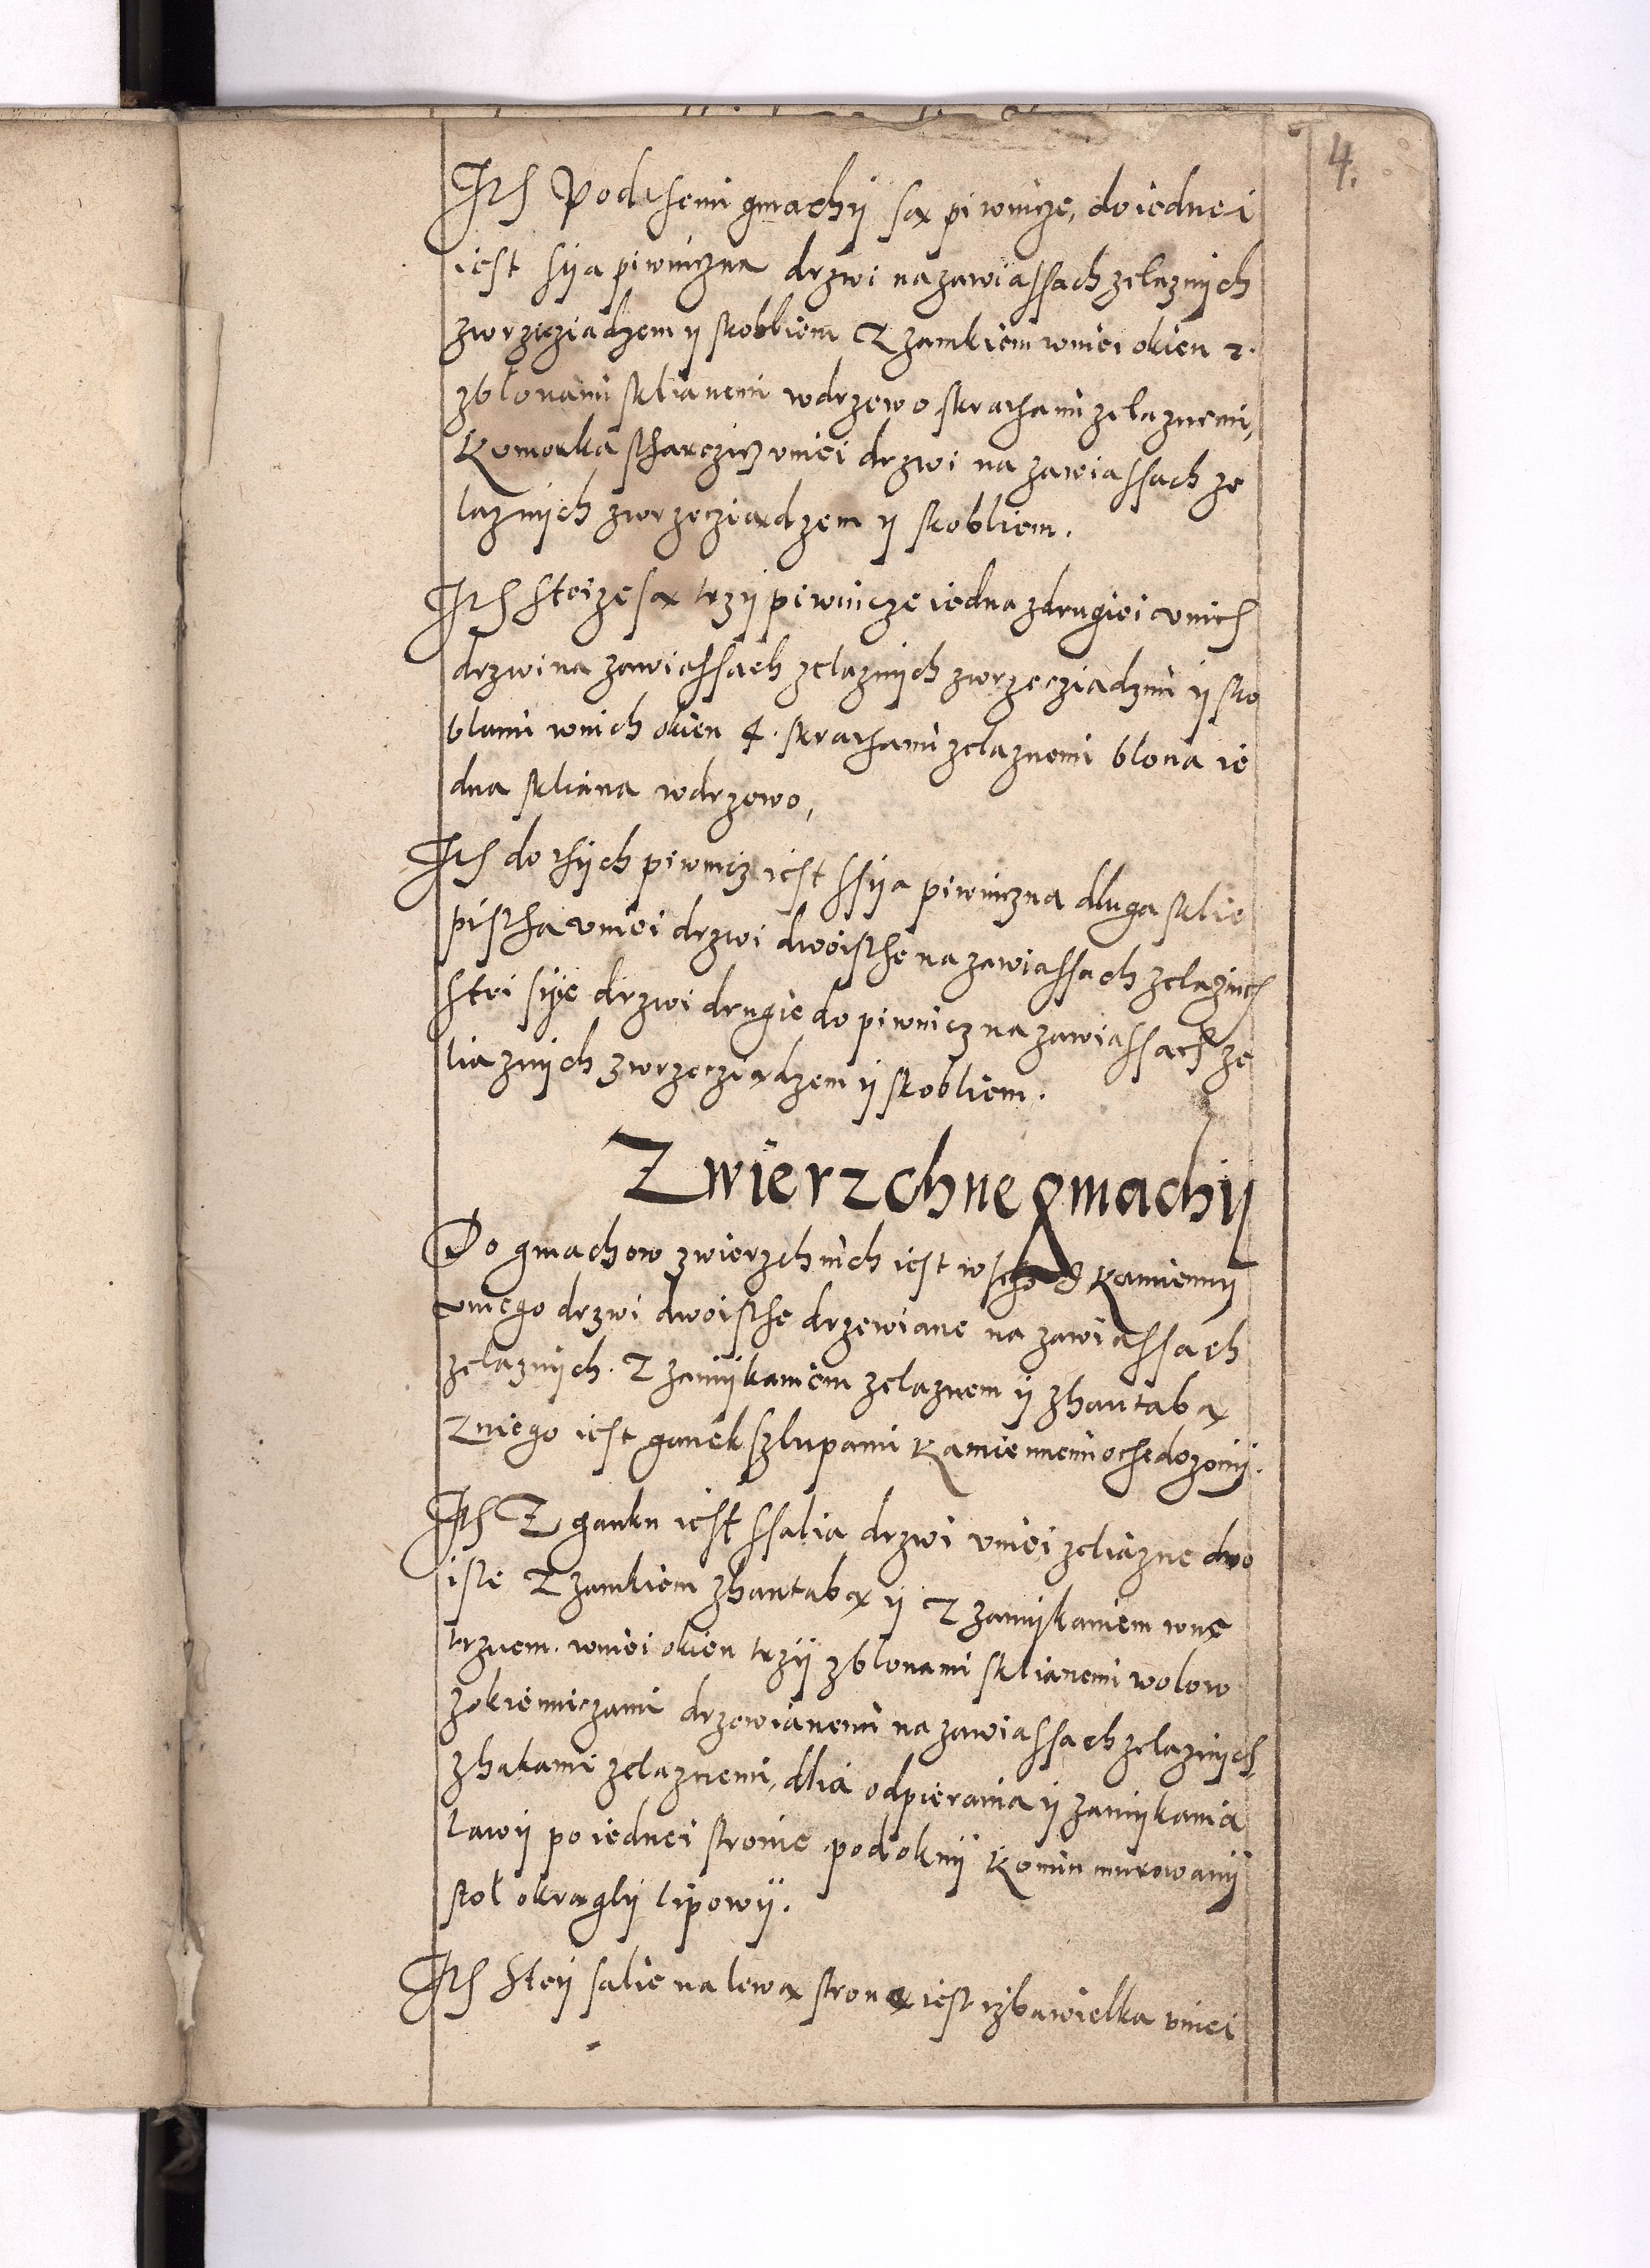 4.
Ith Pod themi gmachÿ są piwnicze, do iednei
iest sÿia piwniczna drzwi na zawiassach zelaznÿch
zwrzecziadzem ÿ skobliem Z zamkiem wniei okien 2.
zblonami sklianemi wdrzewo skrathami zelaznemi,
Komorka tharczicz uniei drzwi na zawiassach ze
laznÿch zwrzecziądzem ÿ skobliem.
Ith steizesą trzÿ piwnicze iedna zdrugiei unich
drzwi na zawiassach zelaznÿch zwrzecziadzmi ÿ sko
blami wnich okien 4. skrathami zelaznemi blona ie
dna skliana wdrzewo,
Ith do thÿch piwnicz iest ssÿia piwniczna dluga sklie
pistha uniei drzwi dwoisthe na zawiassach zelaznich
stei sÿie drzwi drugie do piwnicz na zawiassach ze
liaznÿch zwrzecziądzem ÿ skobliem.
Zwierzchne gmachÿ
Do gmachow zwierzchnich iest wschod Kamiennÿ
unego drzwi dwoisthe drzewiane na zawiassach
zelaznÿch. Z zamÿkaniem zelaznem ÿ zhantabą
Zniego iest ganek szlupami Kamiennemi ochedozonÿ.
Ith Z ganku iest ssalia drzwi uniei zeliazne dwo
iste Z zamkiem zhantabą ÿ Z zamÿkaniem wnę
trznem. wniei okien trzÿ zblonami sklianemi wolow
zokienniczami drzewianemi na zawiassach zelaznÿch
zhakami zelaznemi, dlia odpierania ÿ zamÿkania
lawÿ po iednei stronie pod oknÿ Komin murowanÿ
stol okraglÿ lipowÿ.
Ith stey salie na lewą stroną iest izba wielka uniei